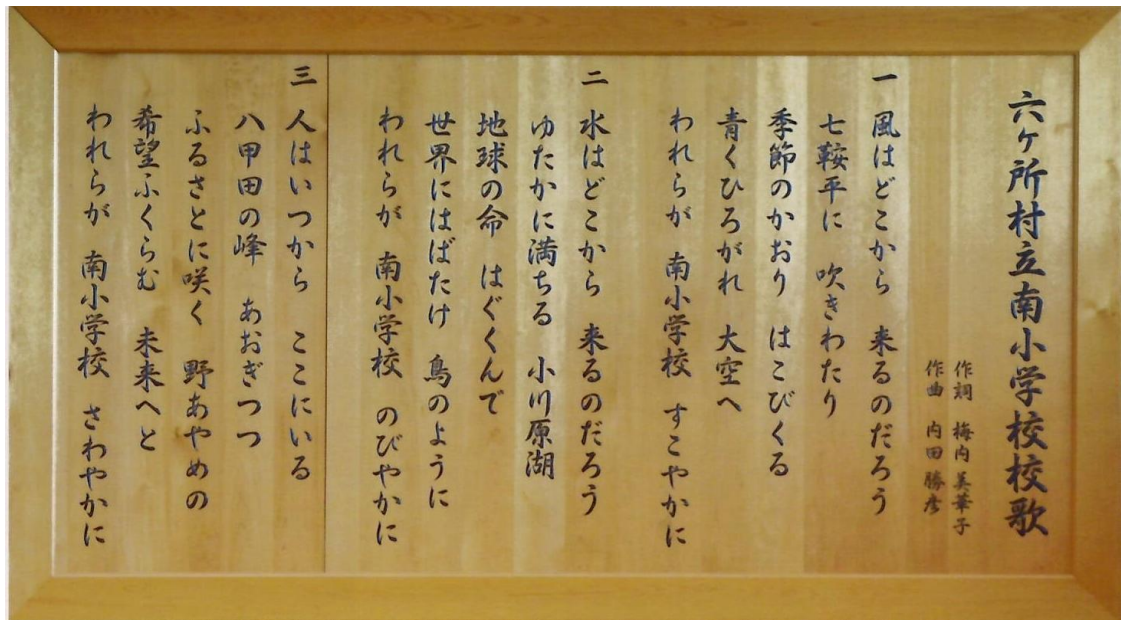 六ヶ所村立南小学校校歌
作詞 梅内美華子
作曲 内田勝彦
一 風はどこから 来るのだろう
七鞍平に 吹きわたり
季節のかおり はこびくる
青くひろがれ 大空へ
われらが 南小学校 すこやかに
二 水はどこから 来るのだろう
ゆたかに満ちる 小川原湖
地球の命 はぐくんで
世界にはばたけ 鳥のように
われらが 南小学校 のびやかに
三 人はいつから ここにいる
八甲田の峰 あおぎつつ
ふるさとに咲く 野あやめの
希望ふくらむ 未来へと
われらが 南小学校 さわやかに